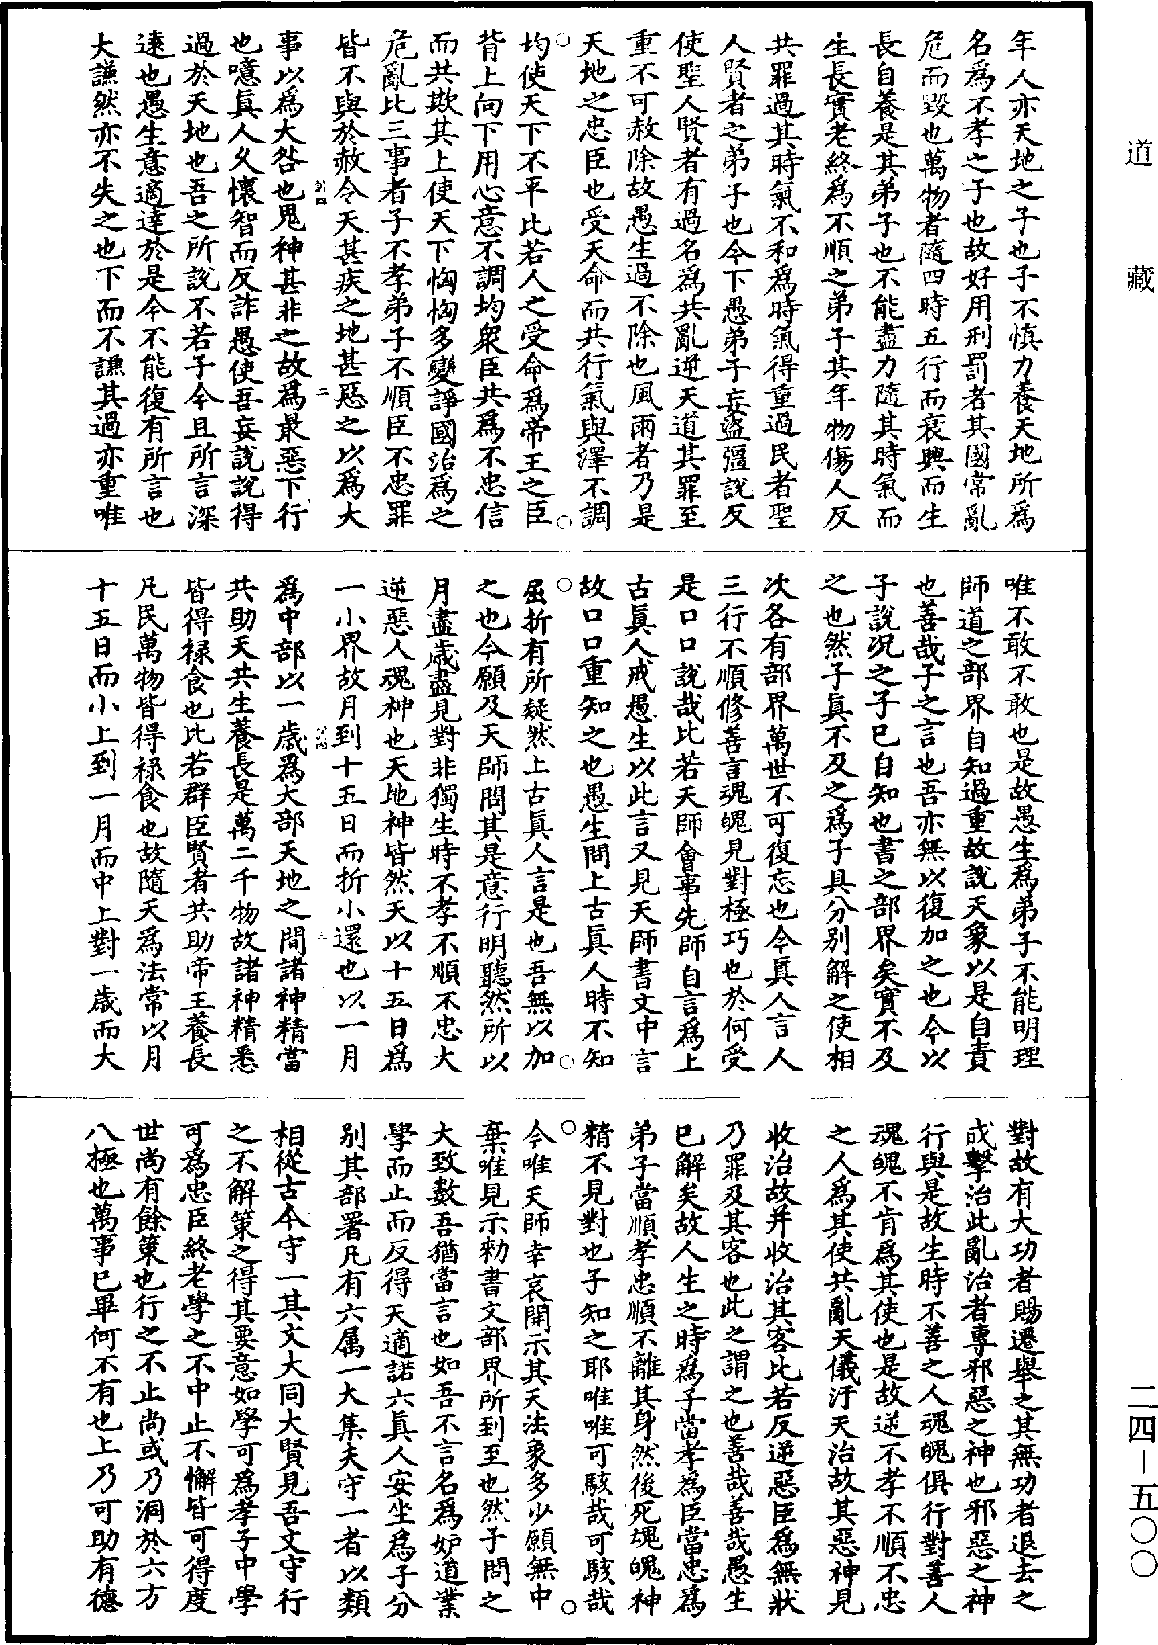 道藏
年人亦天地之子也子不慎力養天地所爲
名爲不孝之子也故好用刑罰者其國常亂
危而毀也萬物者隨四時五行而衰興而生
長自養是其弟子也不能盡力隨其時氣而
生長實老終爲不順之弟子其年物傷人反
共罪過其時氣不和爲時氣得重過民者聖
人賢者之弟子也今下愚弟子妄盜彊說反
使聖人賢者有過名爲共亂逆天道其罪至
重不可赦除故愚生過不除也風雨者乃是
天地之忠臣也受天命而共行氣與澤不調
均使天下不平比若人之受命爲帝王之臣
背上向下用心意不調均衆臣共爲不忠信
而共欺其上使天下恟恟多變諍國治爲之
危亂比三事者子不孝弟子不順臣不忠罪
皆不與於赦令天甚疾之地甚惡之以爲大
事以爲大咎也鬼神甚非之故爲最惡下行
也噫眞人久懷智而反詐愚使吾妄說說得
過於天地也吾之所說不若子今且所言深
遠也愚生意適達於是今不能復有所言也
大謙然亦不失之也下而不謙其過亦重唯
唯不敢不敢也是故愚生爲弟子不能明理
師道之部界自知過重故說天象以是自責
也善哉子之言也吾亦無以復加之也今以
子說況之子已自知也書之部界矣實不及
之也然子眞不及之爲子具分別解之使相
次各有部界萬世不可復忘也今眞人言人
三行不順修善言魂魄見對極巧也於何受
是口口說哉比若天師會事先師自言爲上
古眞人戒愚生以此言又見天師書文中言
故口口重知之也愚生問上古眞人時不知
屈折有所疑然上古眞人言是也吾無以加
之也今願及天師問其是意行明聽然所以
月盡歲盡見對非獨生時不孝不順不忠大
逆惡人魂神也天地神皆然天以十五日爲
一小界故月到十五日而折小還也以一月
爲中部以一歲爲大部天地之間諸神精當
共助天共生養長是萬二千物故諸神精悉
皆得祿食也比若群臣賢者共助帝王養長
凡民萬物皆得祿食也故隨天爲法常以月
十五日而小上到一月而中上對一歲而大
對故有大功者賜遷舉之其無功者退去之
或擊治此亂治者專邪惡之神也邪惡之神
行與是故生時不善之人魂魄俱行對善人
魂魄不肯爲其使也是故逆不孝不順不忠
之人爲其使共亂天儀汙天治故其惡神見
收治故并收治其客比若反逆惡臣爲無狀
乃罪及其客也此之謂之也善哉善哉愚生
已解矣故人生之時爲子當孝爲臣當忠爲
弟子當順孝忠順不離其身然後死魂魄神
精不見對也子知之耶唯唯可駭哉可駭哉
今唯天師幸哀開示其天法象多少願無中
棄唯見示勑書文部界所到至也然子問之
大致數吾猶當言也如吾不言名爲妒道業
學而止而反得天適諾六眞人安坐爲子分
別其部署凡有六屬一大集夫守一者以類
相從古今守一其文大同大賢見吾文守行
之不解策之得其要意如學可爲孝子中學
可爲忠臣終老學之不中止不懈皆可得度
世尚有餘策也行之不止尚或乃洞於六方
八極也萬事已畢何不有也上乃可助有德
二四—五〇〇